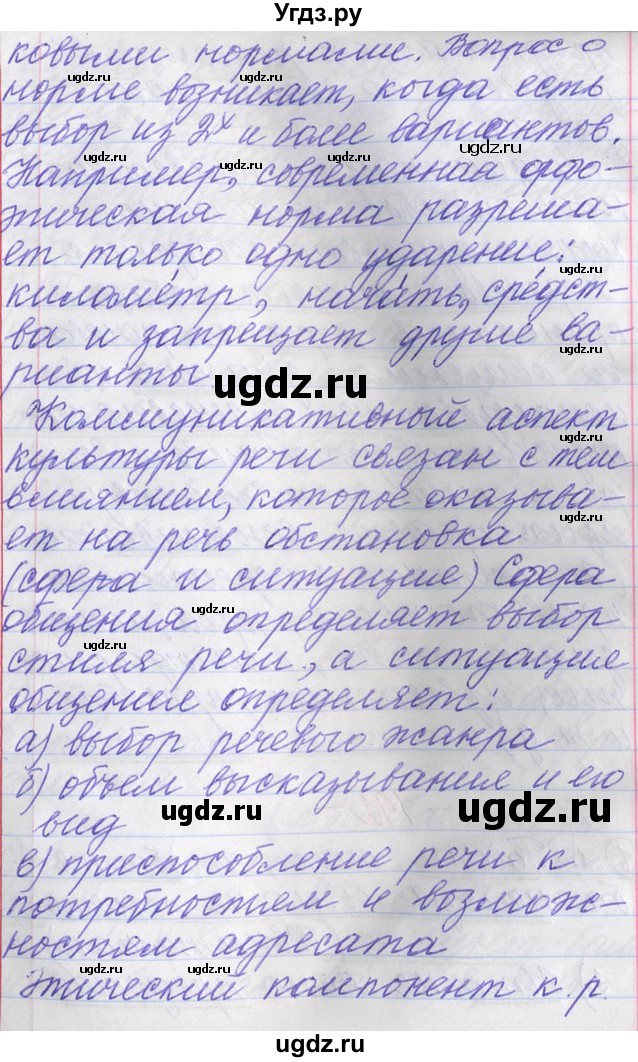 Угдз.ру
ковыми нормами. Вопрос о
норме возникает, когда есть
выбор из 2х и более вариантов.
Например, современная орфо-
эпическая норма разреша-
ет только одно ударение:
киломе́тр, нача́ть, сре́дст-
ва и запрещает другие ва-
рианты
ugdz.ru
Коммуникативный аспект
культуры речи связан с тем
влиянием, которое оказыва-
ет на речь обстановка
(сфера и ситуация) Сфера
общения определяет выбор
стиля речи, а ситуация
общения определяет:
а) выбор речевого жанра
б) объем высказывания и его
вид
ugdz.ru
в) приспособление речи к
потребностям и возмож-
ностям адресата
Этический компонент к.р.